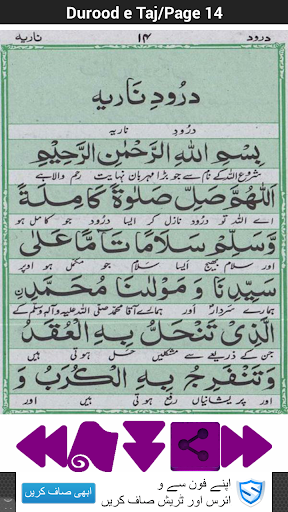 Durood e Taj/Page 14
درود ۱۴ ناریه
درُودِ نَاریه
درُودِ ناریه
بِسْمِ اللهِ الرَّحْمٰنِ الرَّحِيْمِ
شروع اللہ کے نام سے جو بڑا مہربان نہایت رحم والا ہے
اَللّٰهُمَّ صَلِّ صَلٰوةً كَامِلَةً
اے اللہ تو درُود نازل کر ایسا درود جو کامل ہو
وَّسَلِّمْ سَلَامًا تَآمًّا عَلٰى
اور سلام بھیج ایسا سلام جو مکمل ہو اوپر
سَيِّدِنَا وَ مَوْلٰىنَا مُحَمَّدِ
ہمارے سردار اور ہمارے آقا محمد صلی اللہ علیہ وآلہ وسلم کے
الَّذِىْ تَنْحَلُّ بِهِ الْعُقَدُ
جن کے ذریعے سے مشکلیں حل ہوتی ہیں
وَتَنْفَرِجُ بِهِ الْكُرَبُ وَ
اور پریشانیاں رفع ہوتی ہیں اور
اپنے فون سے و
ائرس اور ٹریش صاف کریں
ابھی صاف کریں